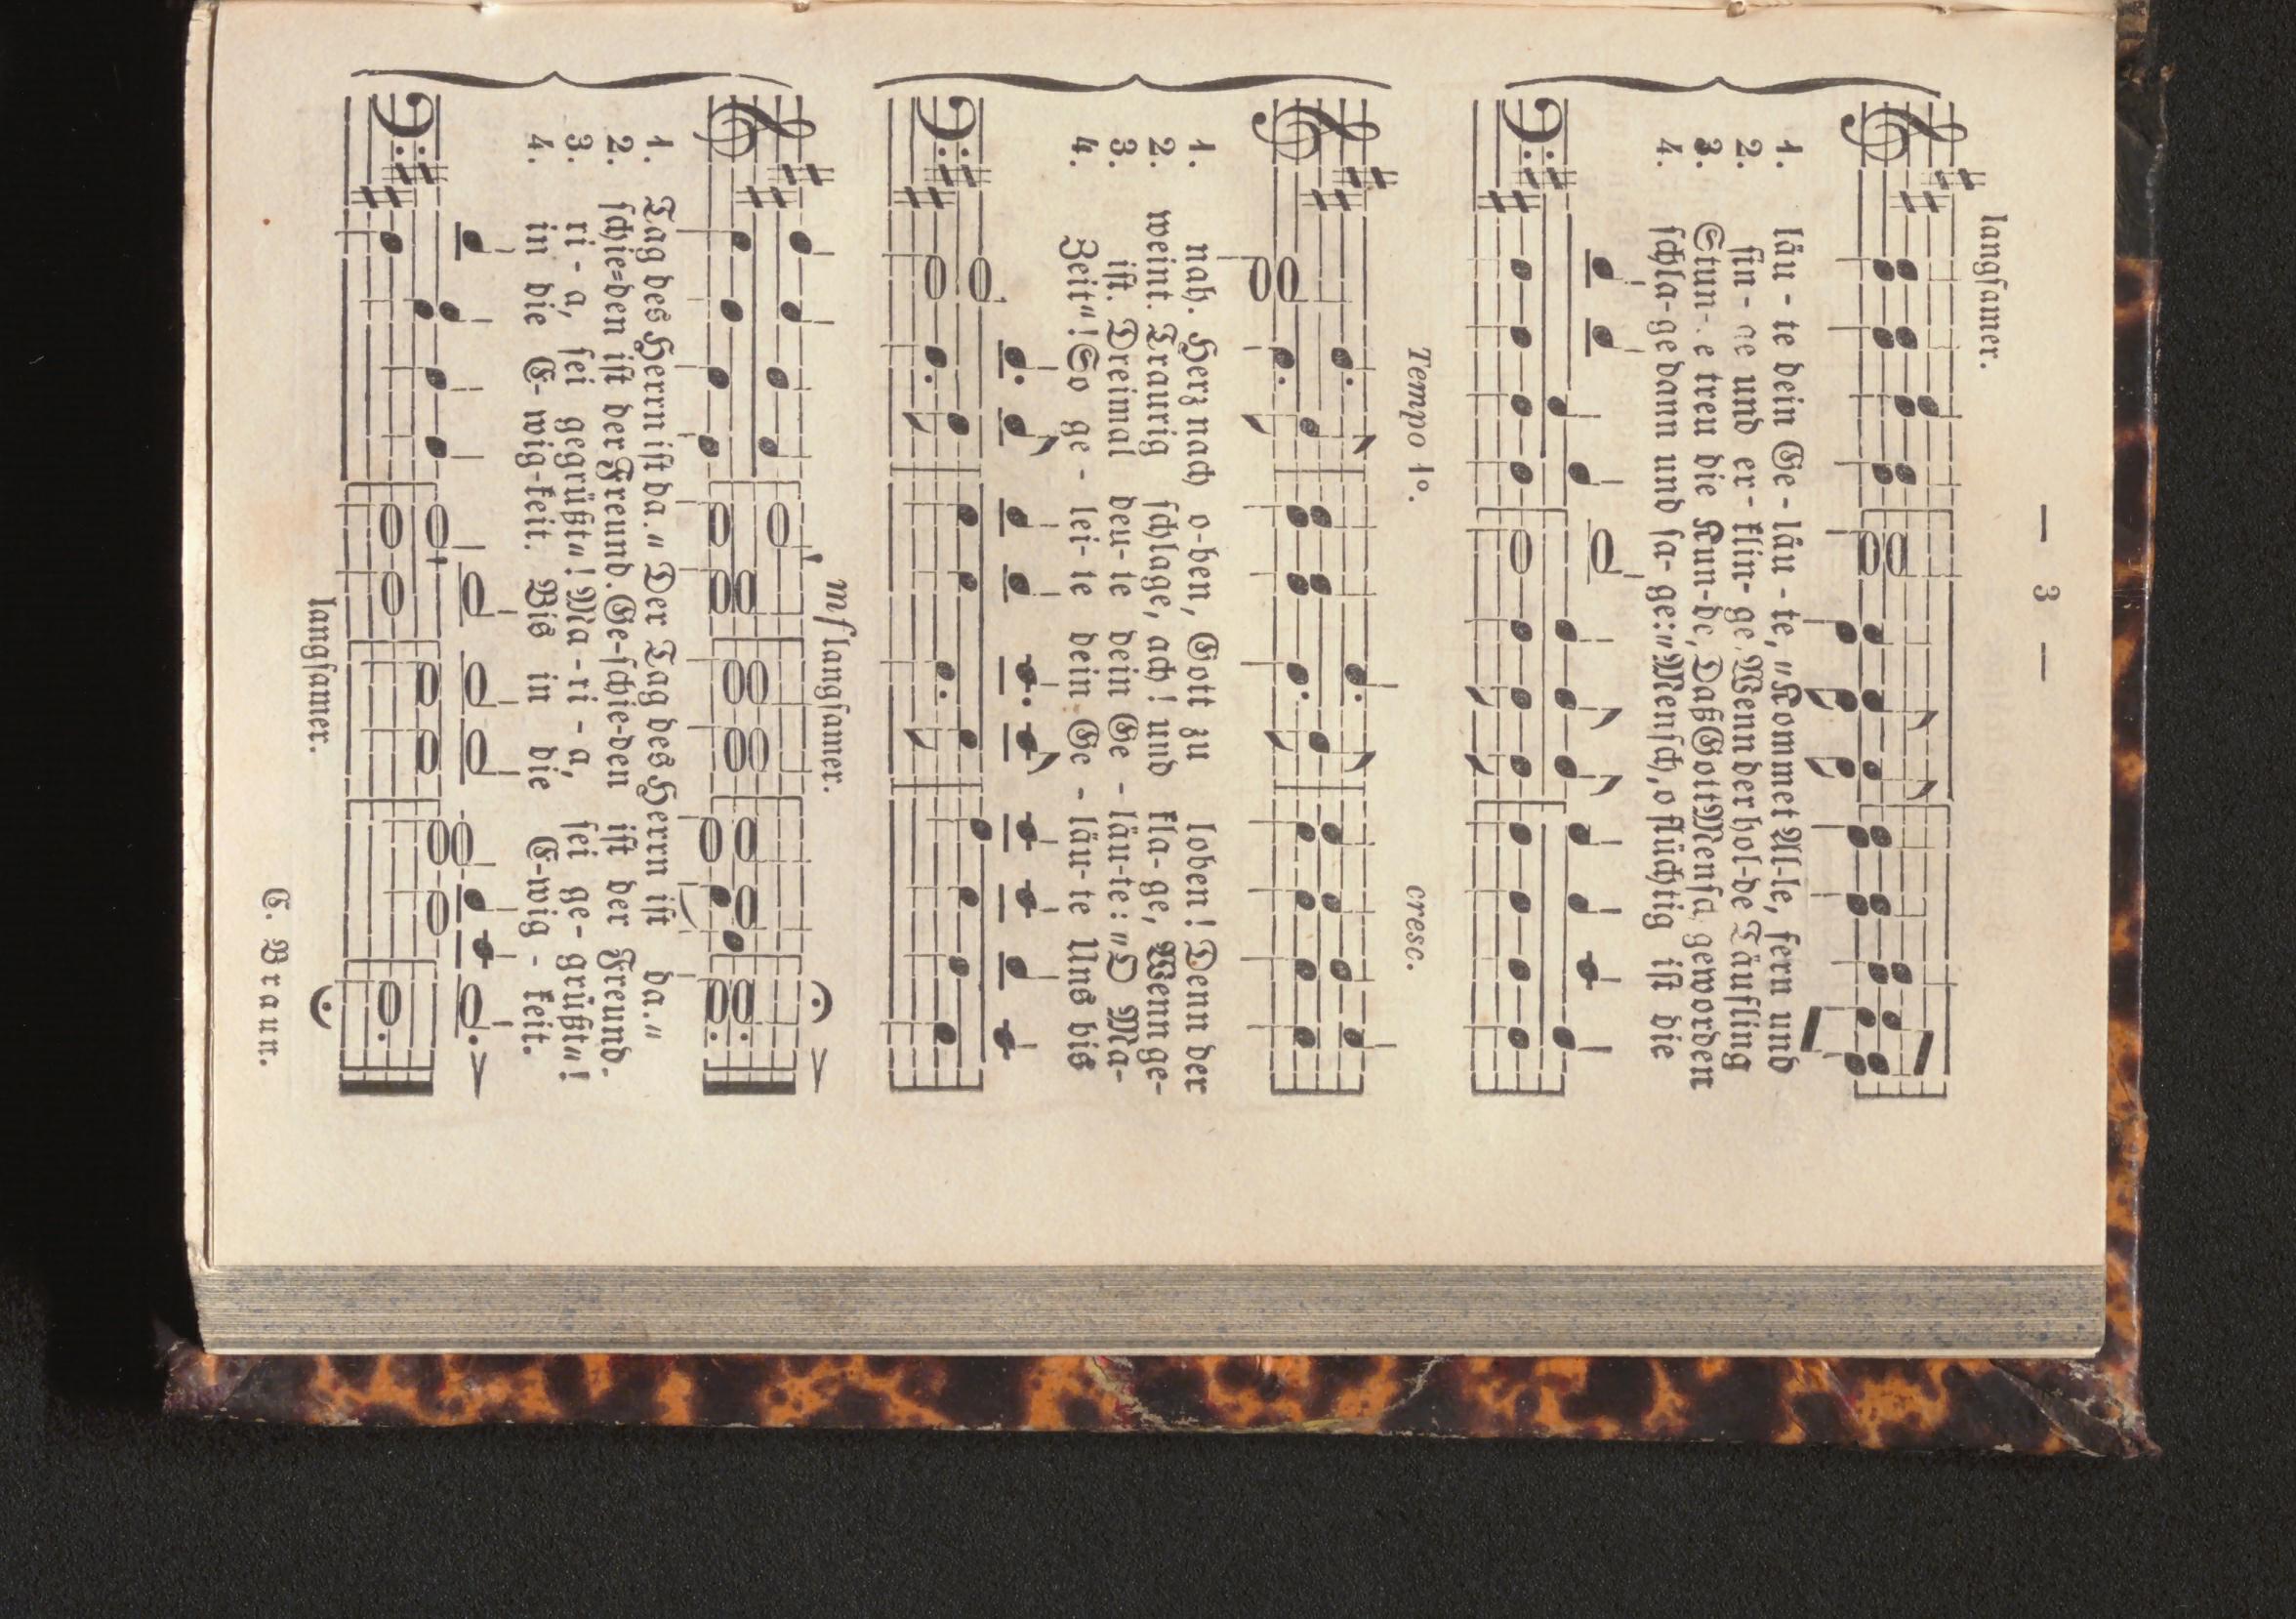 — 3 —
langsamer.
1. läu - te dein Ge - läu - te, „Kommet Al-le, fern und
2. sin - ge und er - klin- ge, Wenn der hol-de Täufling
3. Stun- e treu die Kun-de, Daß Gott Mensch geworden
4. schla-ge dann und sa- ge: „Mensch, o flüchtig ist die
Tempo 1o. cresc.
1. nah. Herz nach o-ben, Gott zu loben! Denn der
2. weint. Traurig schlage, ach! und kla-ge, Wenn ge-
3. ist. Dreimal deu-te dein Ge - läu-te: „O Ma-
4. Zeit“! So ge - lei-te dein Ge - läu-te Uns bis
mf langsamer.
1. Tag des Herrn ist da.“ Der Tag des Herrn ist da.“
2. schie=den ist der Freund. Ge-schie-den ist der Freund.
3. ri - a, sei gegrüßt“! Ma - ri - a, sei ge - grüßt“!
4. in die E- wig-keit. Bis in die E-wig - keit.
langsamer.
C. Braun.